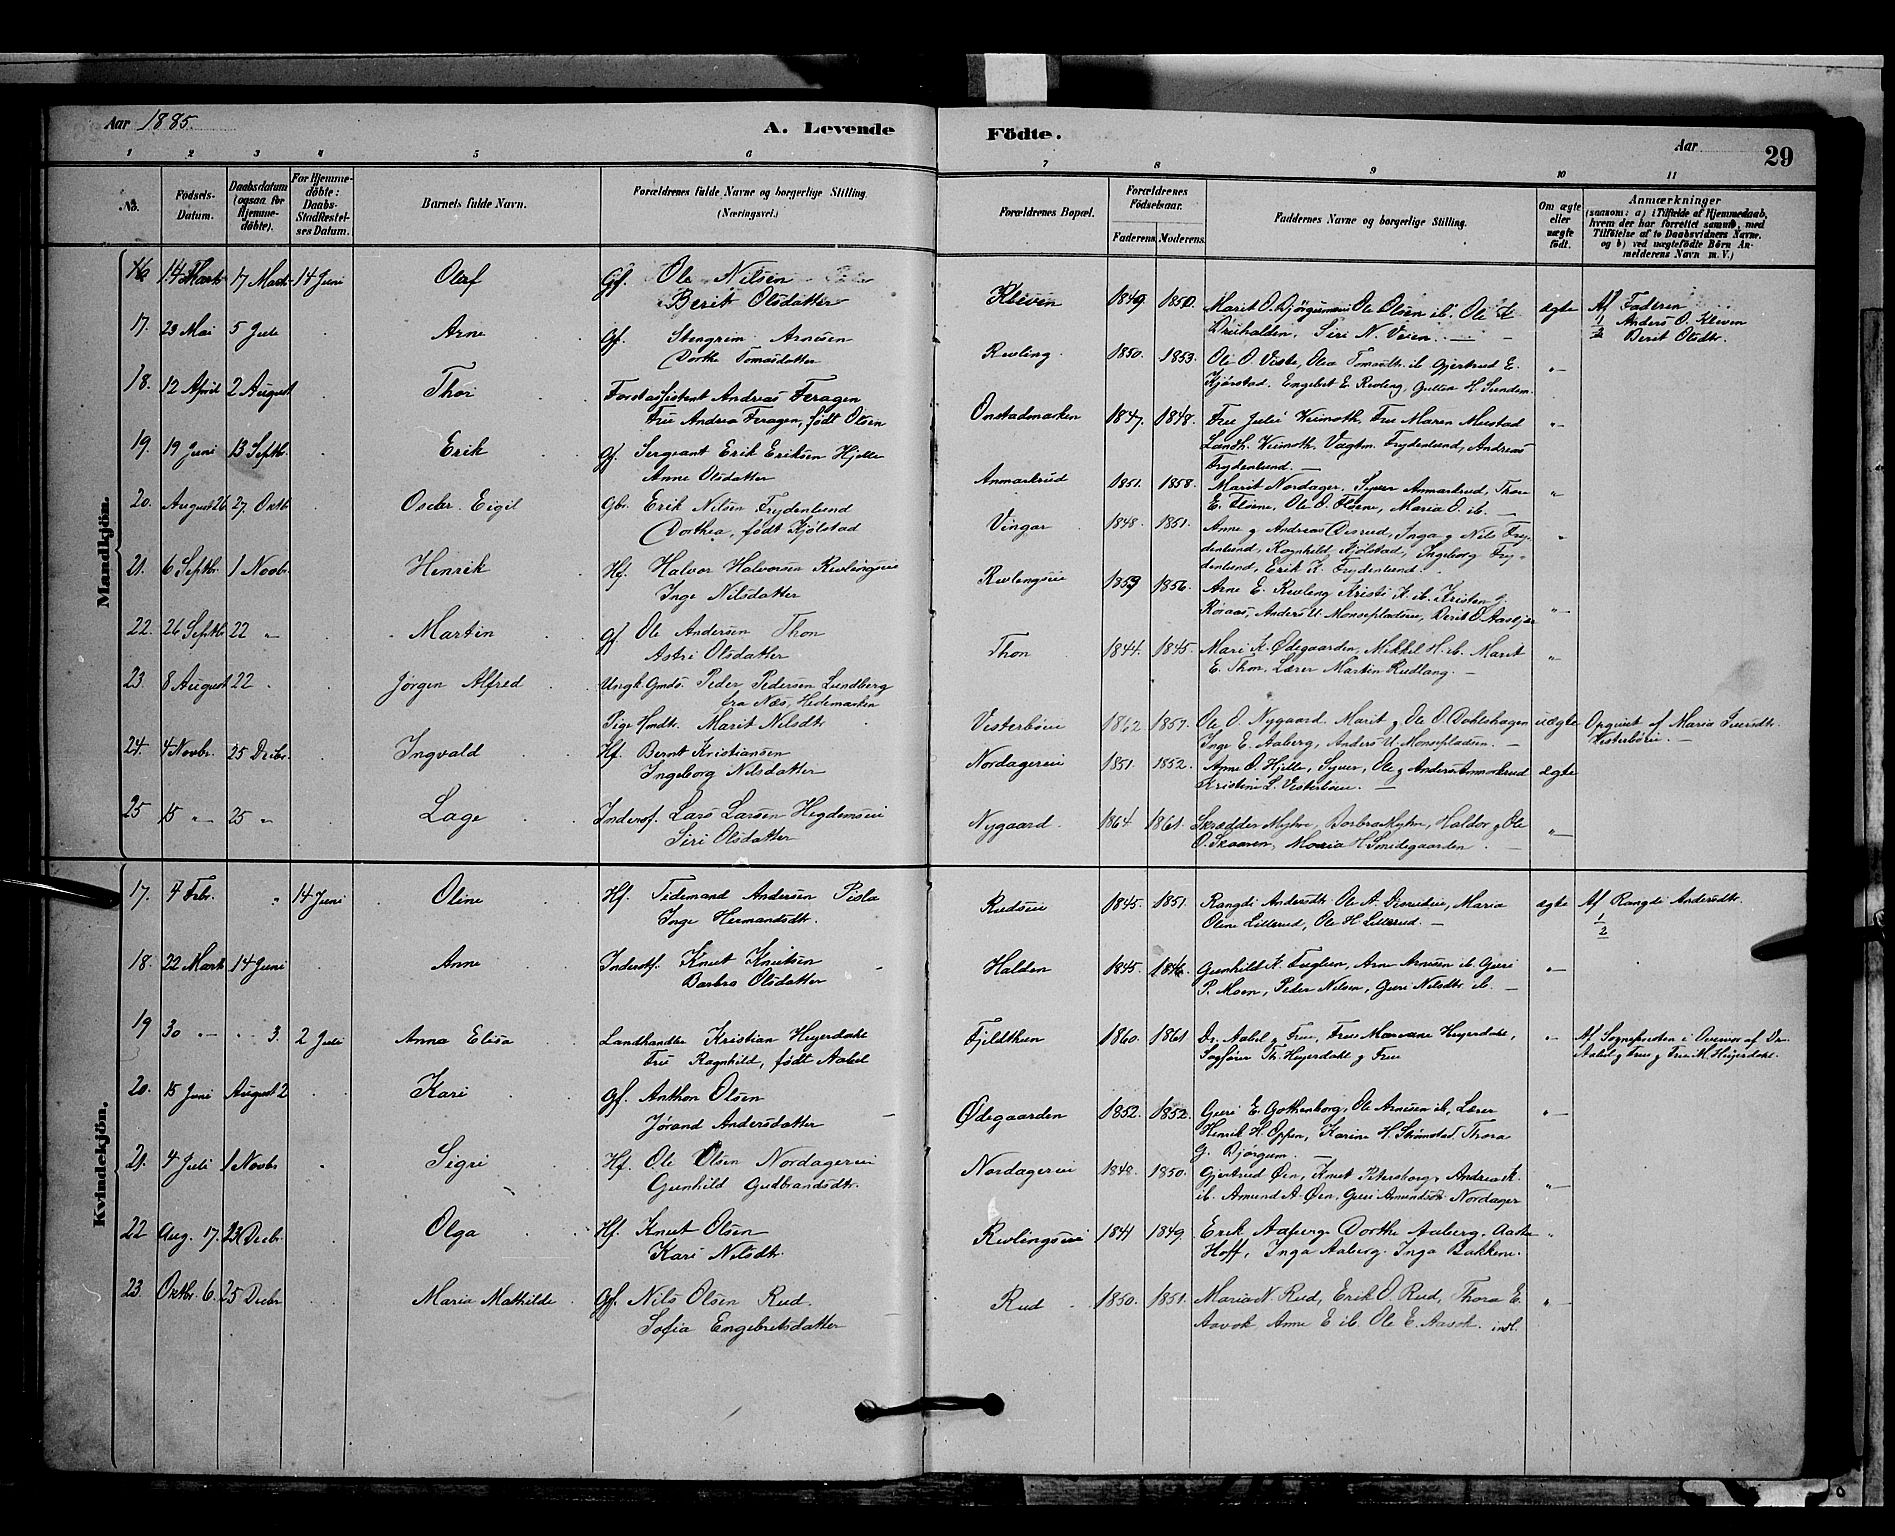 Aar 1885.
A. Levende
Födte.
Aar
29
1 2 3 4 5 6 7 8 9 10 11
No.
Fødsels-Datum.
Daabsdatum (ogsaa for Hjemme-døbte).
For Hjemme-døbte: Daabs-Stadfæstel-ses Datum.
Barnets fulde Navn.
Forældrenes fulde Navne og borgerlige Stilling. (Næringsvei.)
Forældrenes Bopæl.
Forældrenes Fødselsaar.
Faderens. Moderens.
Faddernes Navne og borgerlige Stilling.
Om ægte eller uægte født.
Anmærkninger
(saasom: a) i Tilfælde af Hjemmedaab, hvem der har forrettet samme, med Tilføielse af to Daabsvidners Navne, og b) ved uægtefødte Børn An-melderens Navn m. V.)
Mandkjön.
16 14 Marts 17 Marts 14 Juni Olaf Gf. Ole Nilsen
Berit Olsdatter
Kleven 1849. 1850. Marit O. Bjørgumsmoen Ole Olsen ib. Ole K.
Driihalden, Siri N. Veien. ægte Af Faderen
1/2 Anders O. Kleven
Berit Olsdtr.
17. 23 Mai 5 Juli Arne Gf. Stengrim Arnesen
Dorthe Tomasdatter
Revling. 1850. 1853. Ole O. Veste, Olea Tomasdtr. ib. Gjertrud E.
Kjørstad. Engebret E. Revling, Gullea H. Sundem. "
18. 12 April 2 August Thor Forstassistent Andreas Feragen
Fru Andrea Feragen, født Olsen
Onstadmarken 1847. 1848. Frue Julie Weimoth, Fru Maren Mustad
Landh. Weimoth, Vagtm. Frydenlund, Andreas
Frydenlund. "
19. 19 Juni 13 Septbr. Erik Gf. Sergeant Erik Eriksen Hjelle
Anne Olsdatter
Anmarkrud 1851. 1858. Marit Nordager, Syver Anmarkrud, Thore
E. Fløme, Ole O. Fløme, Maria O. ib. "
20. August 26 27. Oktb. Oscar Eigil Gbr. Erik Nilsen Frydenlund
Dorthea, født Kjølstad
Vingar 1848. 1851. Anne og Andreas Disrud, Inga og Nils Fry-
denlund, Ragnhild Kjølstad, Ingeborg Fry-
denlund, Erik K. Frydenlund. "
21. 6 Septbr. 1 Novbr. Henrik Hf. Halvor Halvorsen Revlingseie
Inge Nilsdatter
Revlingseie 1859 1856. Arne E. Revling Kristi K. ib. Kristen G.
Røraas, Anders U. Monsepladsen, Berit O. Aasleien "
22. 26 Septbr. 22 " Martin Gf. Ole Andersen Thon
Astri Olsdatter
Thon 1844. 1845. Mari K. Ødegaarden, Mikkel H. ib. Marit
E. Thon, Lærer Martin Rudlang. "
23. 8 August 22 " Jørgen Alfred Ungk. Gmds. Peder Pedersen Lundberg
fra Næs, Hedemarken
Pige Hmdt. Marit Nilsdtr.
Vesterbøeie 1862 1857. Ole O. Nygaard. Marit og Ole O. Dokkehagen
Inge E. Aaberg, Anders U. Monsepladsen. uægte Opgivet af Maria Iversdtr.
Vesterbøeie.
24. 4 Novbr. 25 Decbr. Ingvald Hf. Bernt Kristiansen
Ingeborg Nilsdatter
Nordagereie 1851. 1852. Anne O. Hjelle, Syver, Ole og Anders Anmarkrud
Kristine L. Vesterbøeie. ægte
25 15 " 25 " Lage Inderst f. Lars Larsen Hegdemseie
Siri Olsdatter
Nygaard. 1864 1861. Skrædder Myhre, Barbra Myhre, Haldor og Ole
O. Skaaren, Maria H. Smedegaarden. "
Kvindekjön.
17. 4 Febr. " 14 Juni Oline Hf. Tidemand Andersen Pisla
Inge Hermandsdtr.
Rudseie 1845. 1851. Rangdi Andersdtr. Ole A. Disrudeie, Maria
Oline Lillerud, Ole H. Lillerud. ægte Af Rangdi Andersdtr.
1/2
18. 22 Marts 14 Juni Anne Inderstf. Knut Knutsen
Barbro Olsdatter
Halden 1845. 1846. Gunhild K. Fuglien, Arne Arnesen ib. Guri
P. Moen, Peder Nilsen, Guri Nilsdtr. ib. "
19 30 " " 3. 2 Juli Anna Elisa Landhandler Kristian Heyerdahl
Fru Ragnhild, født Aabel
Fjeldheim 1860. 1861 Dr. Aabel og Frue, Frue Marrane Heyerdahl,
Sagfører Th. Heyerdahl og Frue " Af Sognepresten i Overvær af Dr.
Aabel og Frue og Frue M. Heyerdahl.
20. 15 Juni August 2 Kari Gf. Anthon Olsen
Jørand Andersdatter
Ødegaarden 1852. 1852. Guri E. Gothenborg, Ole Arnesen ib, Lærer
Henrik H. Oppen, Karine H. Strømstad, Thora
G. Bjørgum. "
21. 4 Juli 1 Novbr Sigri Hf. Ole Olsen Nordagereie
Gunhild Gudbrandsdtr.
Nordagereie 1848. 1850. Gjertrud Øen, Knut Petersborg, Andrea K.
ib. Amund A. Øen, Guri Amundsdtr. Nordager "
22 Aug. 17. 23 Decbr. Olga Hf. Knut Olsen
Kari Nilsdtr.
Revlingseie 1841 1849. Erik Aaberg, Dorthe Aaberg, Aasta
Hoff, Inga Aaberg. Inga Bakkene. "
23. Oktbr. 6. 25 Decbr Maria Mathilde Gf. Nils Olsen Rud.
Sofia Engebretsdatter
Rud 1850. 1851. Maria N. Rud, Erik O. Rud, Thora E.
Aavok, Anne E. ib. Ole E. Aavok. indl. "